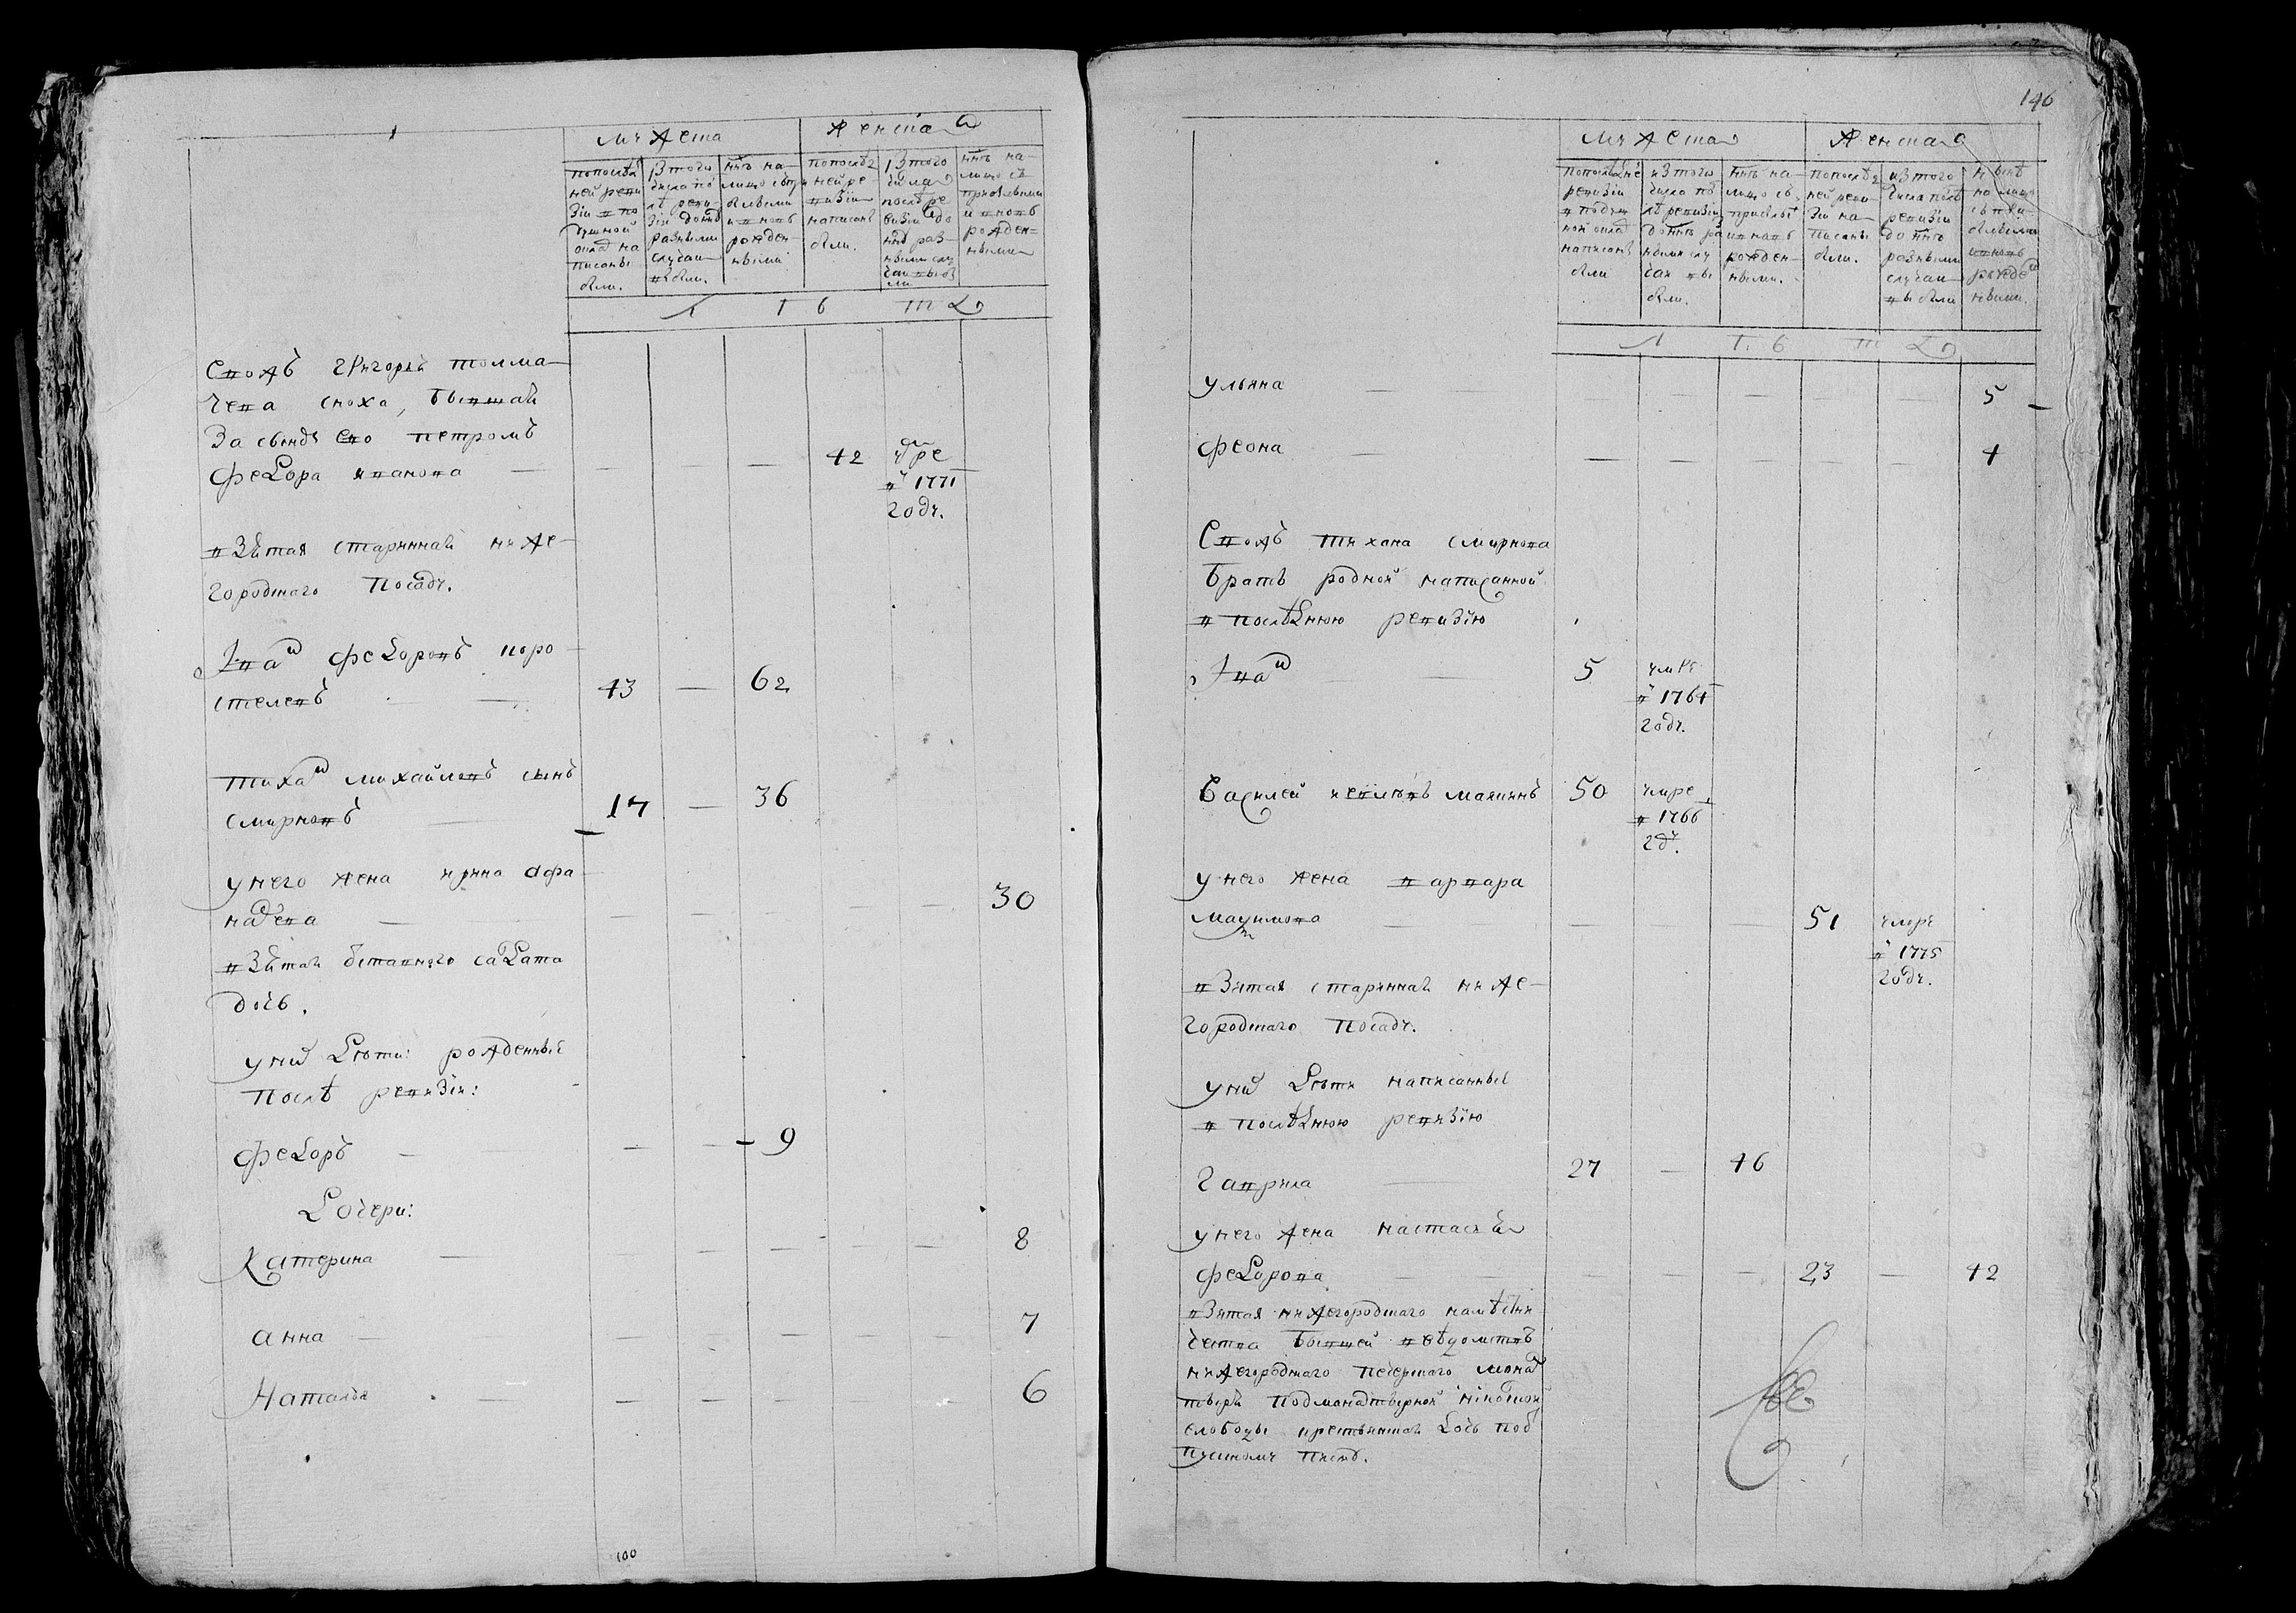 мужеска
женска
по послед
ней реви
зіи в по
душной
оклад на
писаны
были.
из того
числа по
слѣ реви-
зіи до ннѣ
разными
случаи
выбыли.
ннѣ на-
лицо съ при
былыми
и вновь
рожден
ными
по послѣд
ней ре
визіи
написаны
были.
из того
числа
послѣ ре
визіи до
ннѣ раз-
ными слу
чаи выбы
ли
ннѣ на-
лицо съ
прибылыми
и вновь
рожден=
ными
Л Ѣ Т А
вдовъ Григорья толма
чева сноха, бывшая
за сыном ево петромъ
федора иванова — — — 42 умре
в 1771
году.
взятая стариннаго ниже-
городскаго посаду.
Иван федоровъ коро
стелевъ — 43 — 62
Тихан михайловъ сынъ
смирновъ 17 — 36
у него жена ирина афа
насьева — — — — — — 30
взятая отставнаго салдата
дочь.
у них дѣти: рожденныя
послѣ ревизіи:
федоръ — — — 9
Дочери:
Катерина — — — — — 8
анна — — — — — — 7
Наталья — — — — — — 6
100
146
мужеска
женска
по послѣдне
ревизіи
в подуш
ной оклад
написаны
были
из того
числа по
слѣ ревизіи
до ннѣ ра
зными слу
чаи вы
были.
ннѣ на-
лицо съ
прибылы
и вновь
рожден-
ными.
по послѣд
ней реви-
зіи на-
писаны
были.
из того
числа послѣ
ревизіи
до ннѣ
разными
случаи
выбыли
нынѣ
на лицо
съ при
былыми
и вновь
рожден
ными.
Л Ѣ Т А
ульяна — — — — — — — 5
феона — — — — — — 4
вдовъ тихана смирнова
братъ родной написанной
в последнюю ревизію
Иван — 5 умре
в 1764
году.
Василей иевлевъ маянинъ 50 умре
в 1766
гду.
у него жена варвара
максимова — — — — 51 умре
в 1775
году.
взятая стариннаго ниже-
городскаго посаду.
у них дѣти написанныя
в последнюю ревизію
гаврила — 27 — 46
у него жена настасья
федорова — — — — 23 — 42
взятая нижегородскаго намѣсни
чества бывшей вѣдомствъ
нижегородскаго печерскаго мона
стыря подмонастырной
слободы крестьянина дочь по от
пускному писму.